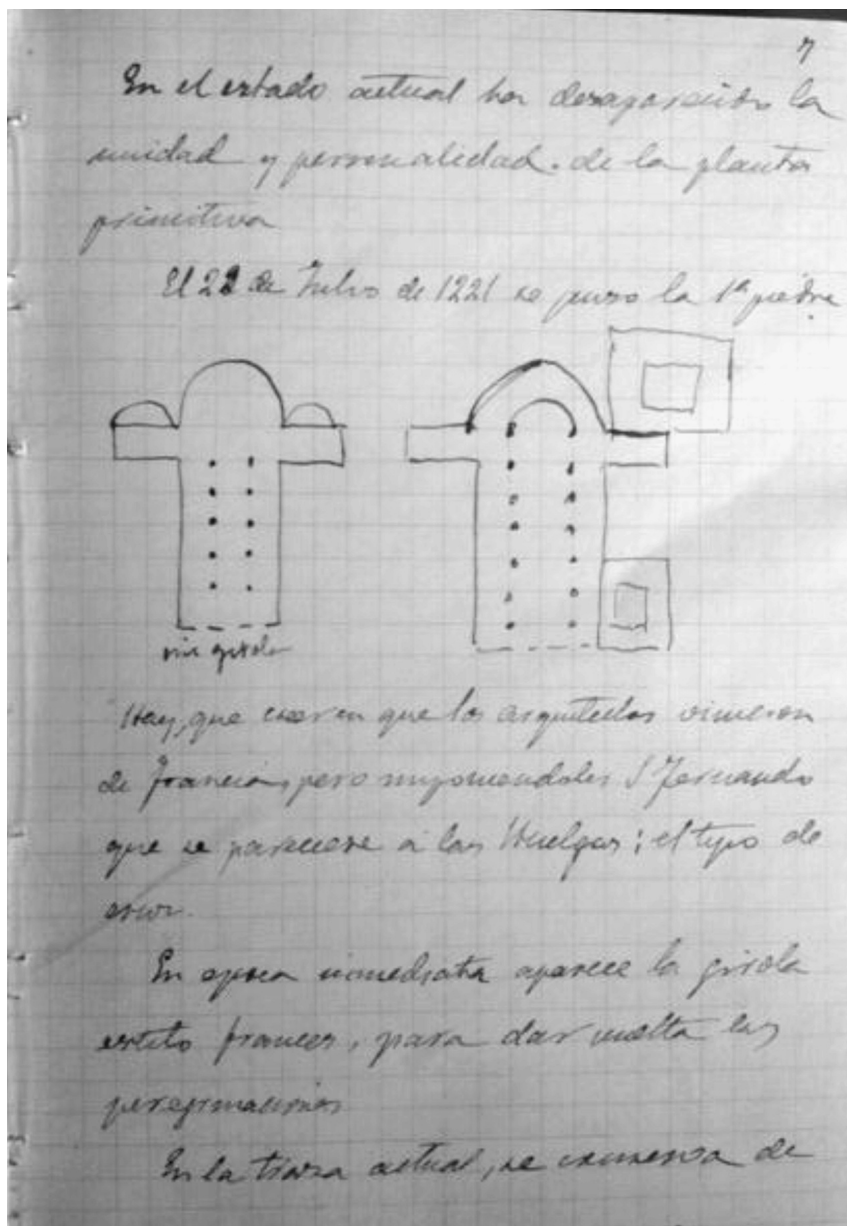 7
En el estado actual ha desaparecido la
unidad y personalidad de la planta
primitiva
El 22 de Julio de 1221 se puso la 1ª piedra
sin girola
Hay, que creer en que los arquitectos vinieron
de Francia, pero imponiendoles S Fernando
que se pareciese a las Huelgas; el tipo de
En epoca inmediata aparece la girola
estilo frances, para dar vuelta las
peregrinaciones
En la traza actual, se comienza de